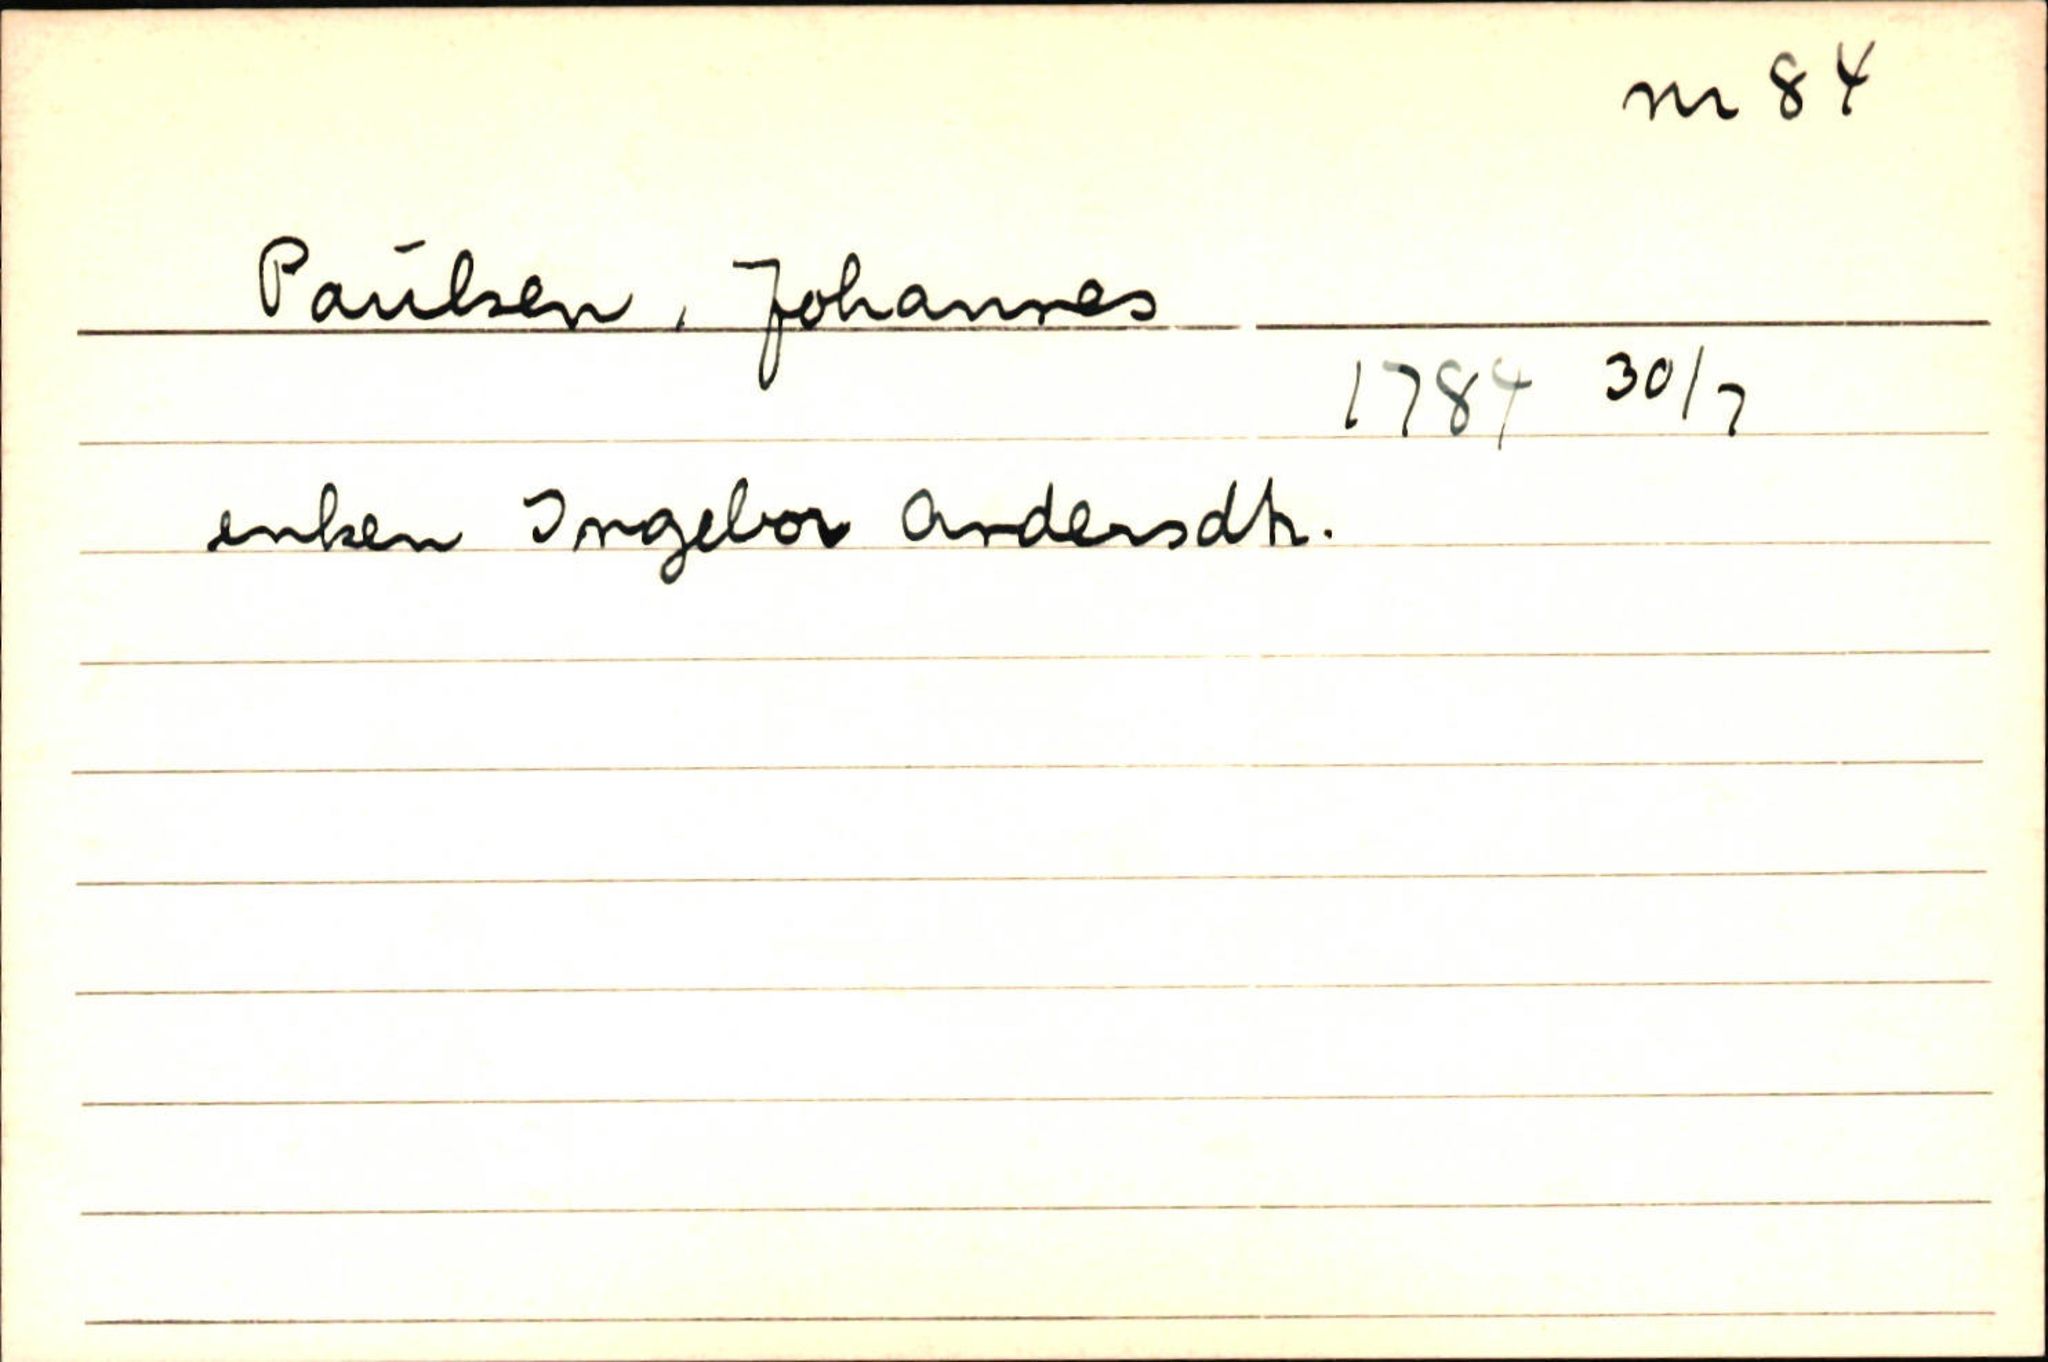 nr 84
Paulsen, Johannes
1784 30/7
enken Ingebor Andersdtr.